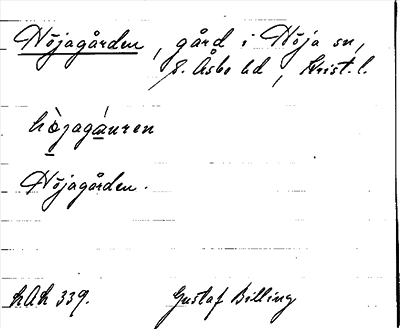 Höjagården, gård i Höja sn,
S. Åsbo hd, Krist. l.
hòjagáuren
Höjagården.
hAh 339. Gustaf Billing